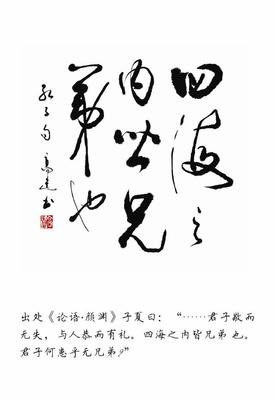 四海之
内皆兄
弟也
孔子句
书
出处《论语·颜渊》子夏曰：“……君子敬而
无失，与人恭而有礼。四海之内皆兄弟 也。
君子何患乎无兄弟？”